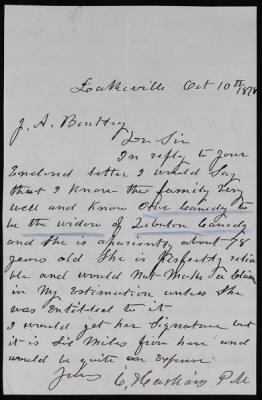 Lakeville Oct 10th 1878
J. A. Bentley
Dr Sir
In reply to your
Enclosed letter I would Say
that I know the family very
well and know Canedy to
be the widow of Zebulon Canedy
and she is apariently about 78
years old She is Perfectly relia
ble and would Not Make a Claim
in My Estimation unless She
was Entitled to it
I would get her Signature but
it is Six Miles from here and
would be quite an Expense
Yours P. M